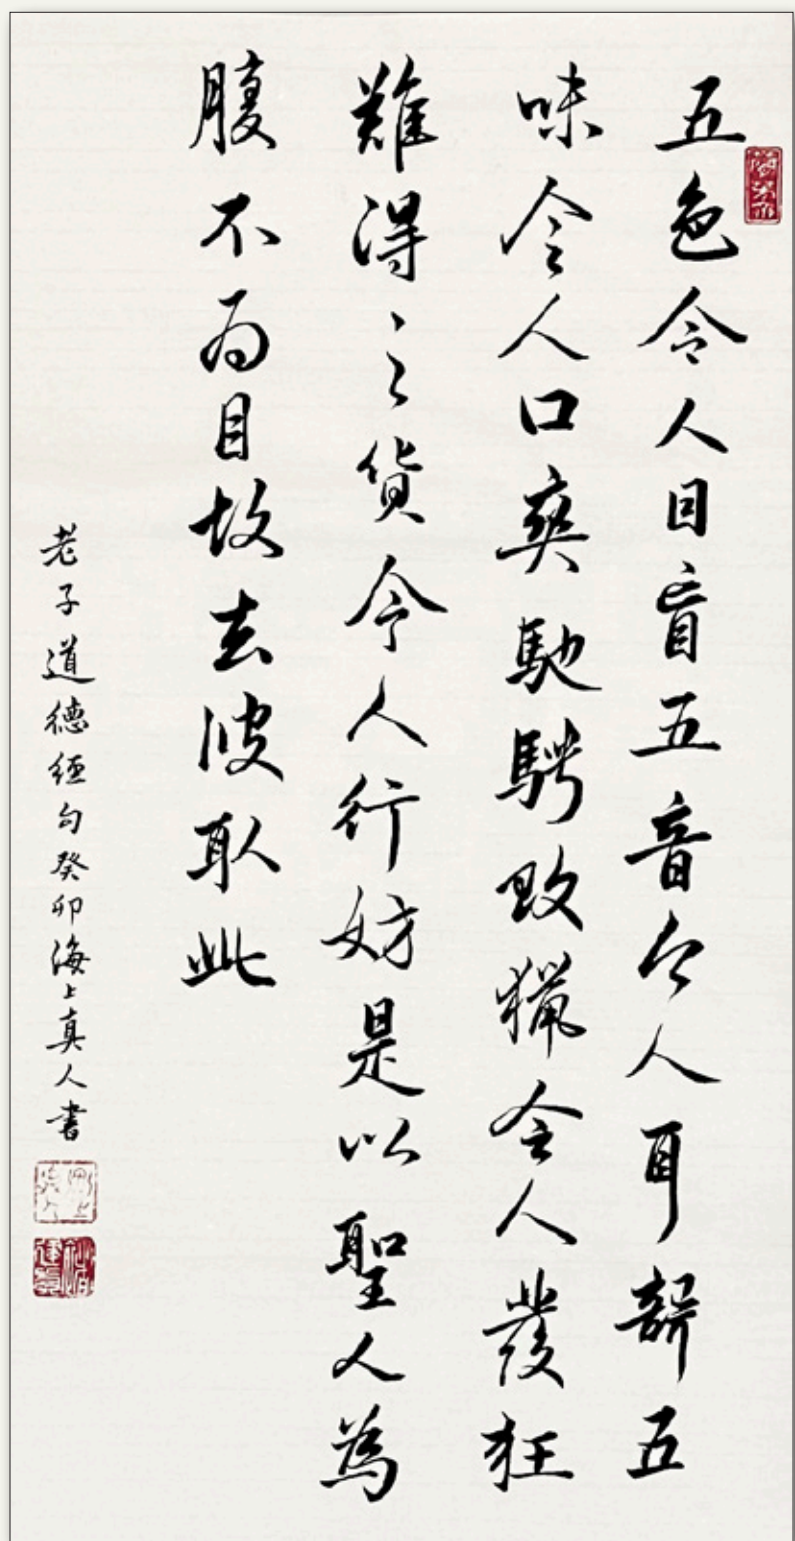 五色令人目盲五音令人耳聾五
味令人口爽馳騁畋獵令人發狂
難得之貨令人行妨是以聖人為
腹不為目故去彼取此
老子道德經句癸卯海上真人書